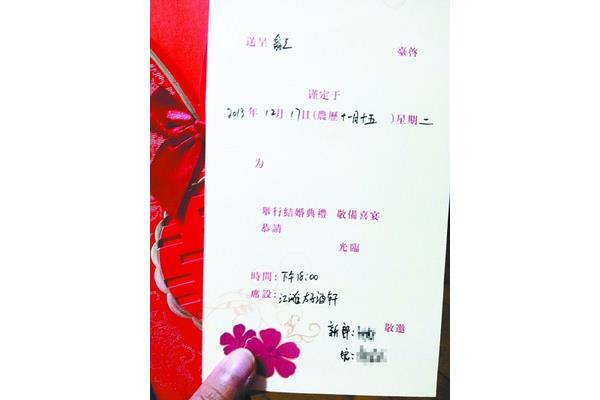 送呈 臺啓
谨定于
2013年 12月 17日(農歷 十一月十五 )星期 二
为
舉行結婚典禮 敬備喜宴
恭請
光臨
時間: 下午18:00
席設: 江滩 轩
新郎: 敬邀
娘: